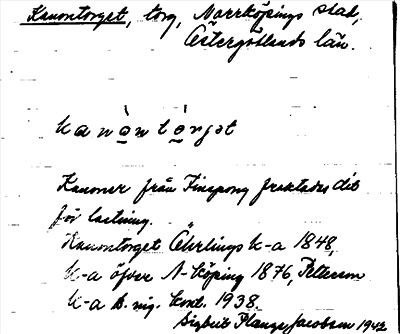 Kanontorget, torg, Norrköpings stad,
Östergötlands län.
kanòntòrget
Kanoner från Finspong fraktades dit
för lastning.
Kanontorget Öhrlings k-a 1848,
k-a öfver N-köping 1876, Pettersson
k-a B. nig. 1938.
Sigbrit Plange Jacobson 1942